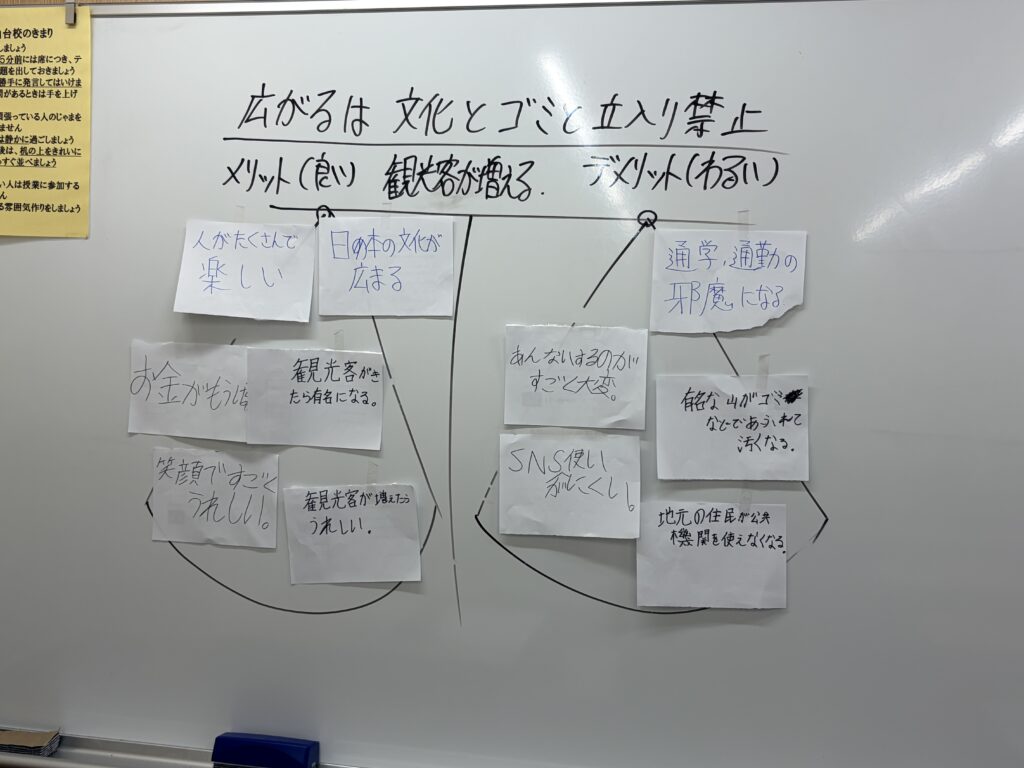 台校のきまり
しましょう
5分前には席につき、テ
題を出しておきましょう
勝手に発言してはいけま
があるときは手を上げ
張っている人のじゃまを
ません
は静かに過ごしましょう
後は、机の上をきれいに
すぐ並べましょう
い人は授業に参加する
ん
る雰囲気作りをしましょう
広がるは 文化とゴミと立入り禁止
メリット(良い) 観光客が増える. デメリット(わるい)
人がたくさんで
楽しい
日の本の文化が
広まる
お金がもうけ
観光客がき
たら有名になる。
笑顔ですごく
うれしい。
観光客が増えたら
うれしい。
通学,通勤の
邪魔になる
あんないするのが
すごく大変。
有名な山がゴミ
などであふれて
汚くなる.
SNS使い
がにくい。
地元の住民が公共
機関を使えなくなる.